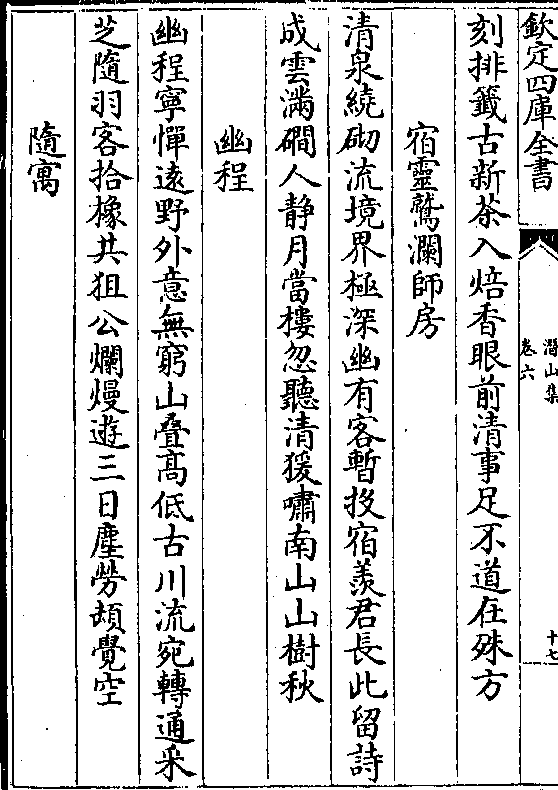 欽定四庫全書
潛山集
卷六
十七
刻排籤古新茶入焙香眼前清事足不道在殊方
宿靈鷲瀾師房
清泉繞砌流境界極深幽有客暫投宿羨君長此留詩
成雲滿磵人静月當樓忽聽清猨嘯南山山樹秋
幽程
幽程寧憚遠野外意無窮山疊髙低古川流宛轉通采
芝隨羽客拾橡共狙公爛熳遊三日塵勞頓覺空
隨寓